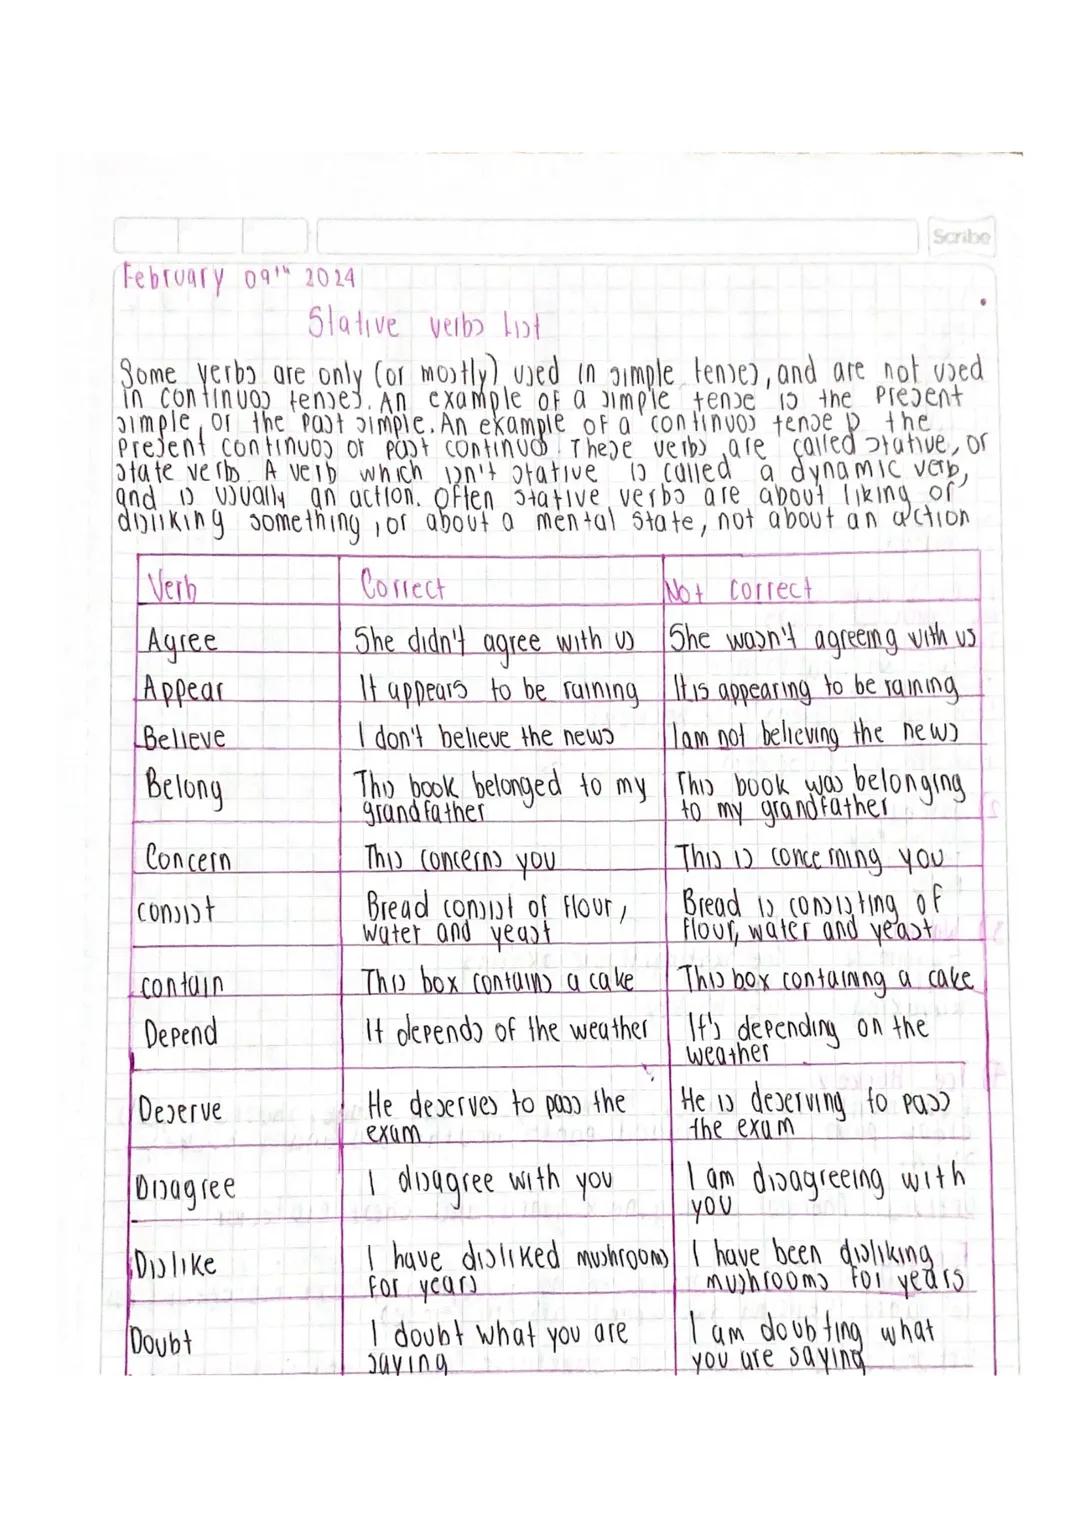 Scribe
February 09th 2024
Stative verbs list
Some verbs are only (or mostly) used in simple tenses, and are not used
in continuos tenses. An example of a simple tense is the present
simple, or the past simple. An example of a continuos tense is the
present continuos or past continuos. These verbs are called stative, or
state verbs. A verb which isn't stative is called a dynamic verb,
and is usually an action. Often stative verbs are about liking or
disliking something, or about a mental state, not about an action
Verb Correct Not correct
Agree She didn't agree with us She wasn't agreeing with us
Appear It appears to be raining It is appearing to be raining
Believe I don't believe the news I am not believing the news
Belong This book belonged to my This book was belonging
grandfather to my grandfather
Concern This concerns you This is concerning you
consist Bread consist of flour, Bread is consisting of
water and yeast flour, water and yeast
contain This box contains a cake This box containing a cake
Depend It depends of the weather It's depending on the
weather
Deserve He deserves to pass the He is deserving to pass
exam the exam
Disagree I disagree with you I am disagreeing with
you
Dislike I have disliked mushrooms I have been disliking
for years mushrooms for years
Doubt I doubt what you are I am doubting what
saying you are saying